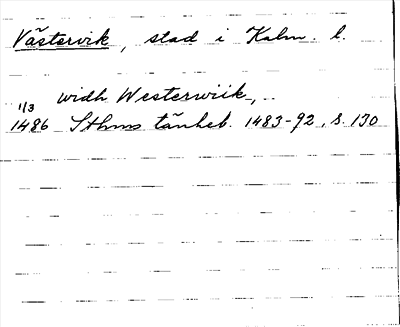 Västervik, stad i Kalm. l.
widh Westerwiik,
1/3
1486 Sthms tänkeb. 1483-92, s. 130